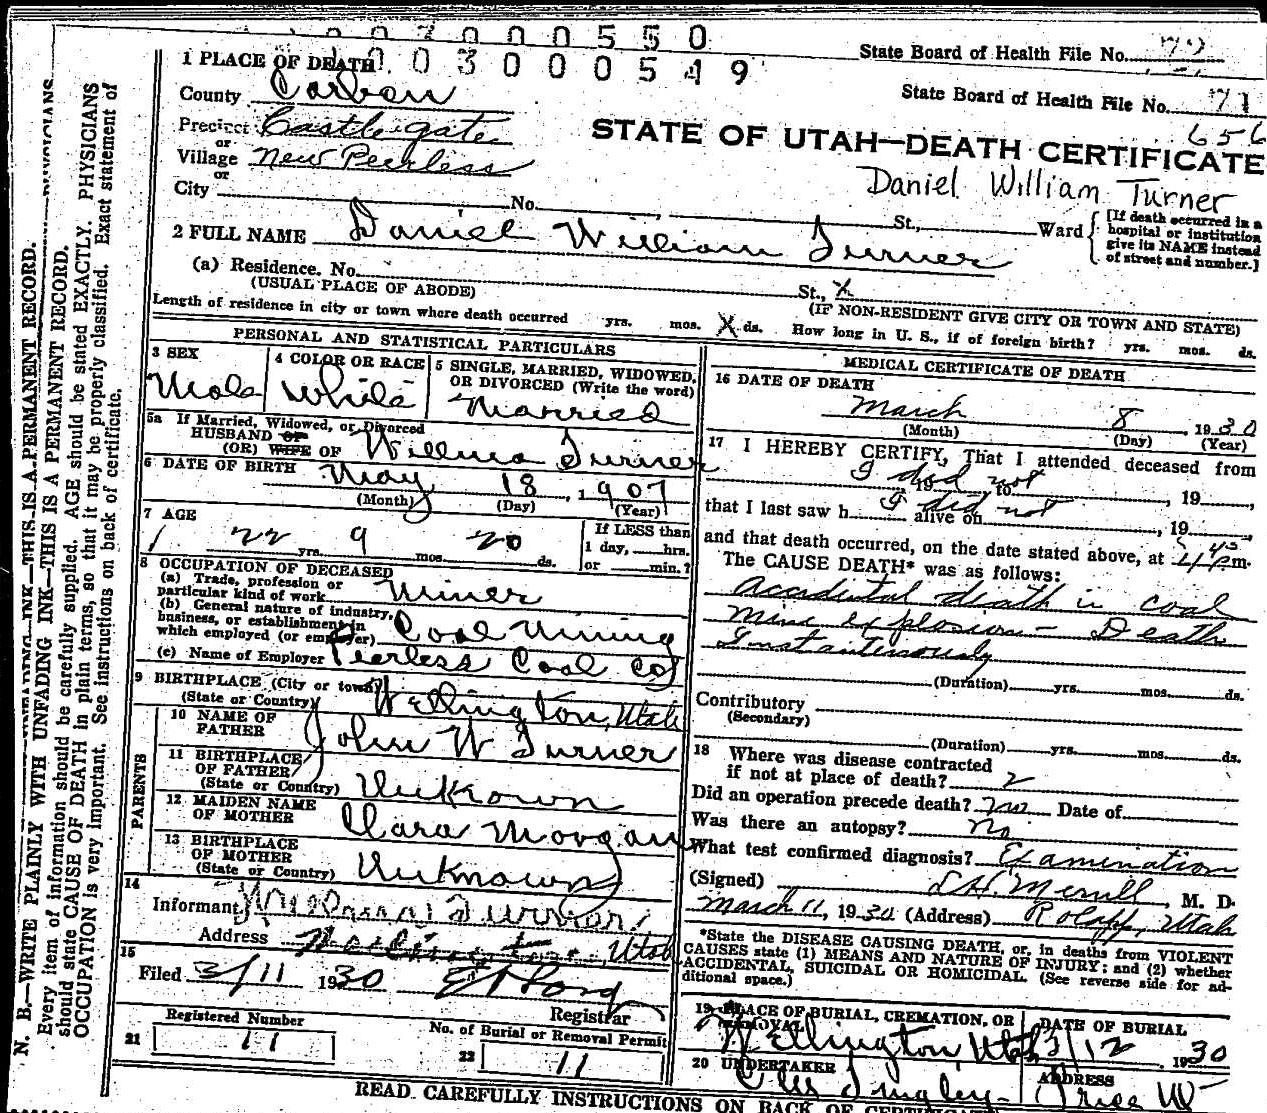 0 0 3 0 0 0 5 5 0
State Board of Health File No. 72
1 PLACE OF DEATH 0 0 3 0 0 0 5 4 9
State Board of Health File No. 71
County Carbon
656
Precinct Castlegate
STATE OF UTAH—DEATH CERTIFICATE
or
Village New Peerless
or
Daniel William Turner
City No. St., Ward
[If death occurred in a
hospital or institution
give its NAME instead
of street and number.]
2 FULL NAME Daniel William Turner
(a) Residence. No. St., X
(USUAL PLACE OF ABODE)
(IF NON-RESIDENT GIVE CITY OR TOWN AND STATE)
Length of residence in city or town where death occurred yrs. mos. X ds. How long in U. S., if of foreign birth? yrs. mos. ds.
PERSONAL AND STATISTICAL PARTICULARS
3 SEX
Male
4 COLOR OR RACE
White
5 SINGLE, MARRIED, WIDOWED,
OR DIVORCED (Write the word)
Married
5a If Married, Widowed, or Divorced
HUSBAND OF
(OR) WIFE OF Willma Turner
6 DATE OF BIRTH May 18, 1907
(Month) (Day) (Year)
7 AGE
22 yrs. 9 mos. 20 ds.
If LESS than
1 day, hrs.
or min.?
8 OCCUPATION OF DECEASED
(a) Trade, profession or
particular kind of work Miner
(b) General nature of industry,
business, or establishment in
which employed (or employer) Coal Mining
(c) Name of Employer Peerless Coal Co
9 BIRTHPLACE (City or town)
(State or Country) Wellington, Utah
PARENTS
10 NAME OF
FATHER John W Turner
11 BIRTHPLACE
OF FATHER
(State or Country) Unknown
12 MAIDEN NAME
OF MOTHER Clara Morgan
13 BIRTHPLACE
OF MOTHER
(State or Country) Unknown
14
Informant Turner
Address Wellington, Utah
15
Filed 3/11 1930
Registrar
21 Registered Number
11
22 No. of Burial or Removal Permit
11
MEDICAL CERTIFICATE OF DEATH
16 DATE OF DEATH
March 8, 1930
(Month) (Day) (Year)
17 I HEREBY CERTIFY, That I attended deceased from
I did not
, 19 to , 19
that I last saw h I did not alive on , 19
and that death occurred, on the date stated above, at 4 45 pm.
The CAUSE DEATH* was as follows:
Accidental death in coal
mine explosion - Death
Instantenously
(Duration) yrs. mos. ds.
Contributory
(Secondary)
(Duration) yrs. mos. ds.
18 Where was disease contracted
if not at place of death?
Did an operation precede death? no Date of
Was there an autopsy? no
What test confirmed diagnosis? Examination
(Signed) L H. Merrill, M. D.
March 11, 1930 (Address) Rolapp, Utah
*State the DISEASE CAUSING DEATH, or, in deaths from VIOLENT
CAUSES state (1) MEANS AND NATURE OF INJURY; and (2) whether
ACCIDENTAL, SUICIDAL OR HOMICIDAL. (See reverse side for ad-
ditional space.)
19 PLACE OF BURIAL, CREMATION, OR
REMOVAL
Wellington, Utah
DATE OF BURIAL
3/12 1930
20 UNDERTAKER
ADDRESS
Price Ut
READ CAREFULLY INSTRUCTIONS ON BACK OF CERTIFICATE
N. B.—WRITE PLAINLY WITH UNFADING INK—THIS IS A PERMANENT RECORD.
Every item of information should be carefully supplied. AGE should be stated EXACTLY. PHYSICIANS
should state CAUSE OF DEATH in plain terms, so that it may be properly classified. Exact statement of
OCCUPATION is very important. See instructions on back of certificate.